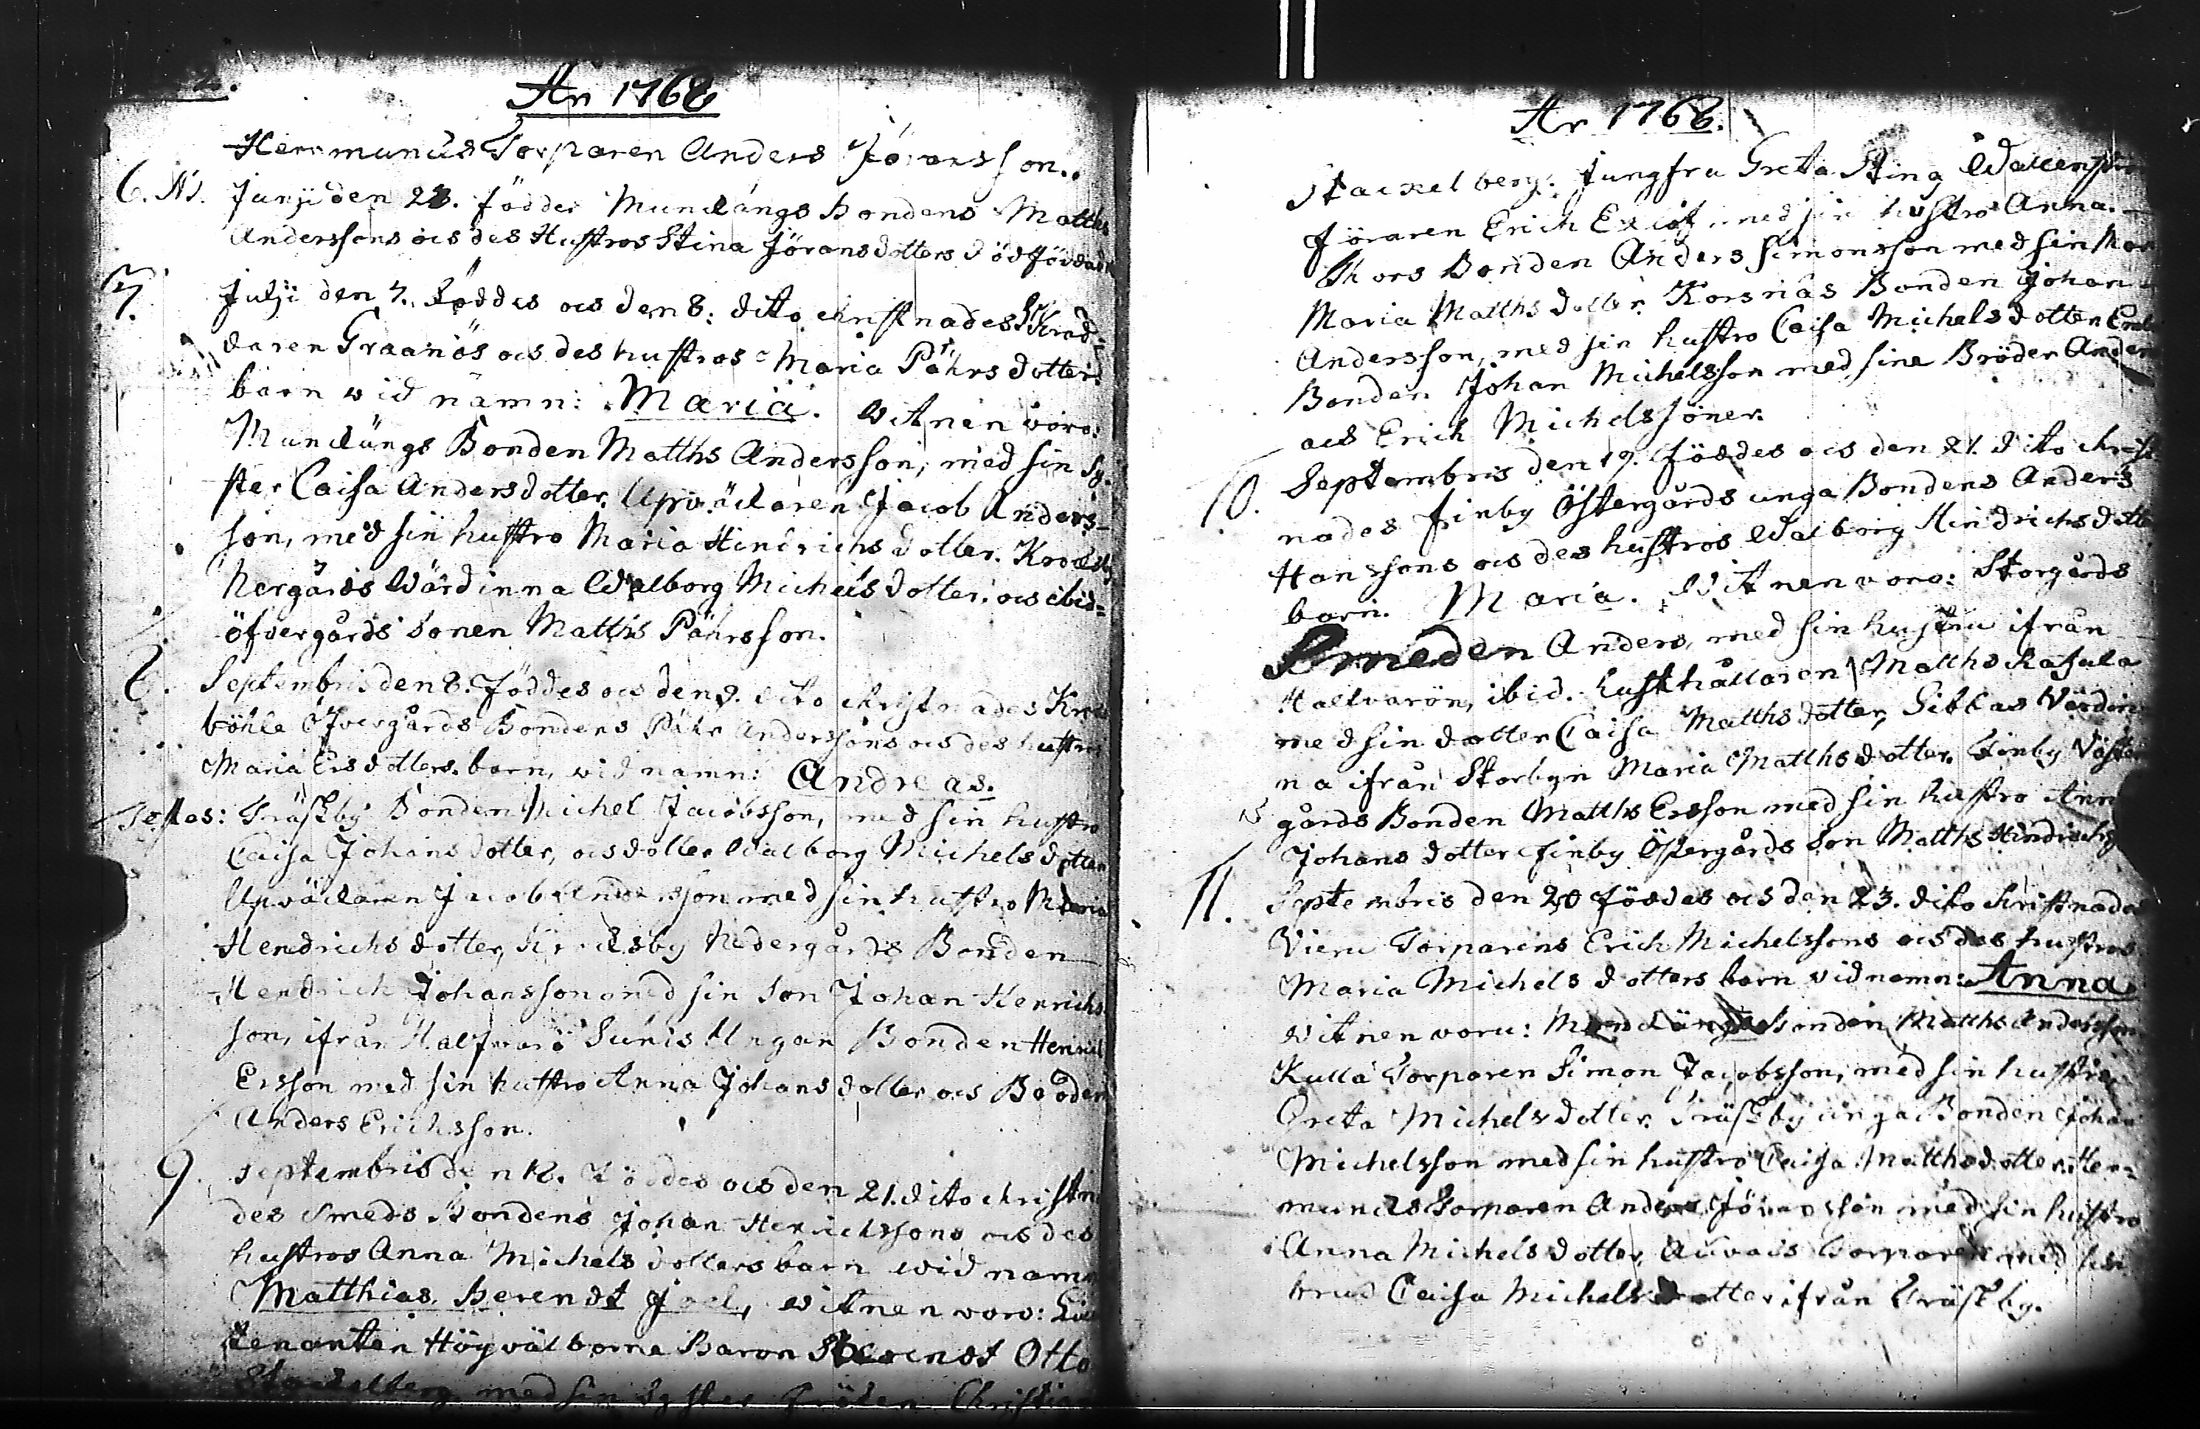 An 1768
Herrmunäs Torparen Anders Jöransson.
6. N. Junji den 23. född Munckängs bondens Matths
Anderssons ocs des Hustros Stina Jöransdotters dödfödda
7. Julji den 7. Föddes ocs den 8. dito christnades Skräd-
daren Graanös ocs des hustros Maria Pährsdotters
barn wid namn: Maria. Witnen voro:
Munckängs Bonden Matths Andersson, med sin Sy-
ster Caisa Andersdotter. Upväcklaren Jacob Anders-
son, med sin hustro Maria Hindrichsdotter. Krocksby
Nergårds Wärdinna Walborg Michelsdotter. ocs ibid-
öfvergårds Sonen Matths Pährsson.
8. Septembris den 8. Föddes ocs den 9. dito christnades
böhle Öfvergårds Bondens Pähr Anderssons ocs des hustros
Maria Ersdotters barn, wid namn: Andreas.
Testas: Träskby Bonden Michel Jacobsson, med sin hustro
Caisa Johansdotter, ocs dotter Walborg Michelsdotter
Jacob Andersson med sin hustro Maria
Hendrichsdotter, Krocksby Nedergårds Bonden
Hendrich Johansson med sin Son Johan Henrichs
son, ifrån Halfvarö Sunis Ungan Bonden Henrich
Ersson med sin hustro Anna Johansdotter ocs Broder
Anders Erichsson.
9. Septembris den 18. Föddes ocs den 21. dito christna
des Smeds Bondens Johan Henrickssons ocs des
hustros Anna Michelsdotters barn wid namn
Matthias Berendt Joel, witnen voro: Lieu
tenanten Högvälborne Baron Berendt Otto
Stackelberg med sin Syster Fröken Christina
An 1768.
Stackelberg. Jungfru Greta Stina
Föraren Erich med sin hustro Anna.
Skors Bonden Anders Simonsson med sin Mor
Maria Matthsdotter. Korsnäs Bonden Johan
Andersson, med sin hustro Caisa Michelsdotter
Bonden Johan Michelsson med sine Bröder Anders
ocs Erich Michelssöner.
10. Septembris den 19. föddes ocs den 21. dito christ
nades Finby Östergårds unga Bondens Anders
Hanssons ocs des hustros Walborg Hindrichsdotter
barn. Maria. Witnen voro: Storgårds
Smeden Anders, med sin hustru ifrån
Halfvarön, ibid. Lusthållaren Matths Rafala
med sin dotter Caisa Matthsdotter, Gibbas Värdin-
na ifrån Storbyn Maria Matthsdotter. Finby Väster
gårds Bonden Matths Ersson med sin hustro Anna
Johansdotter Finby Östergårds Son Matths Hindrichs
11. Septembris den 20 föddes ocs den 23. dito kristnades
Viern Torparens Erich Michelssons ocs des hustros
Maria Michelsdotters barn vid namn: Anna
witnen voru: Munckängs bonden Matths Andersson
Kulla Torparen Simon Jacobsson, med sin hustru
Greta Michelsdotter. Träskby unga Bonden Johan
Michelsson med sin hustro Caisa Matthsdotter. Her-
munäs Torparen Anders Jöransson med sin hustro
Anna Michelsdotter, Torparen med sin
brud Caisa Michelsdotter ifrån Träskby.